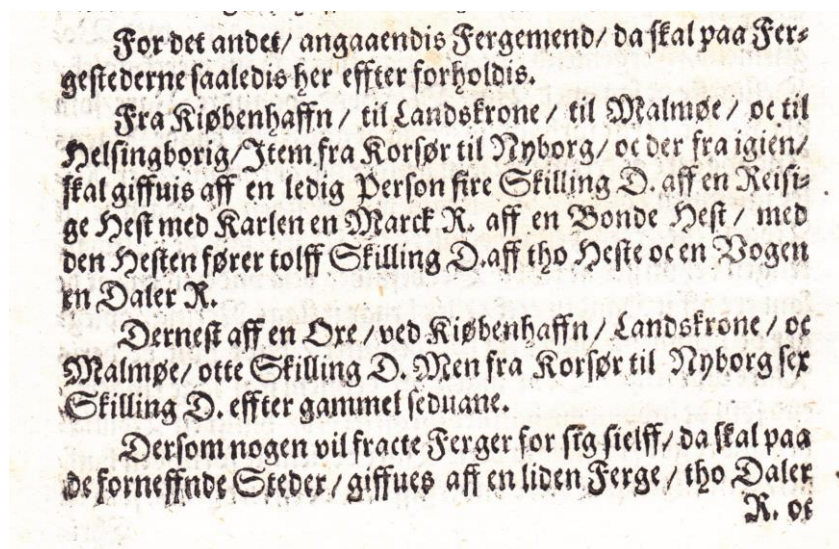 For det andet/ angaaendis Fergemend/ da skal paa Fer⸗
gestederne saaledis her effter forholdis.
Fra Kiøbenhaffn / til Landskrone / til Malmøe / oc til
Helsingborig/ Item fra Korsør til Nyborg/ oc der fra igien/
skal giffuis aff en ledig Person fire Skilling D. aff en Reisi⸗
ge Hest med Karlen en Marck R. aff en Bonde Hest / med
den Hesten fører tolff Skilling D. aff tho Heste oc en Vogen
en Daler R.
Dernest aff en Oxe / ved Kiøbenhaffn / Landskrone / oc
Malmøe/ otte Skilling D. Men fra Korsør til Nyborg sex
Skilling D. effter gammel seduane.
Dersom nogen vil fracte Ferger for sig sielff/ da skal paa
de forneffnde Steder / giffues aff en liden Ferge / tho Daler
R. oc